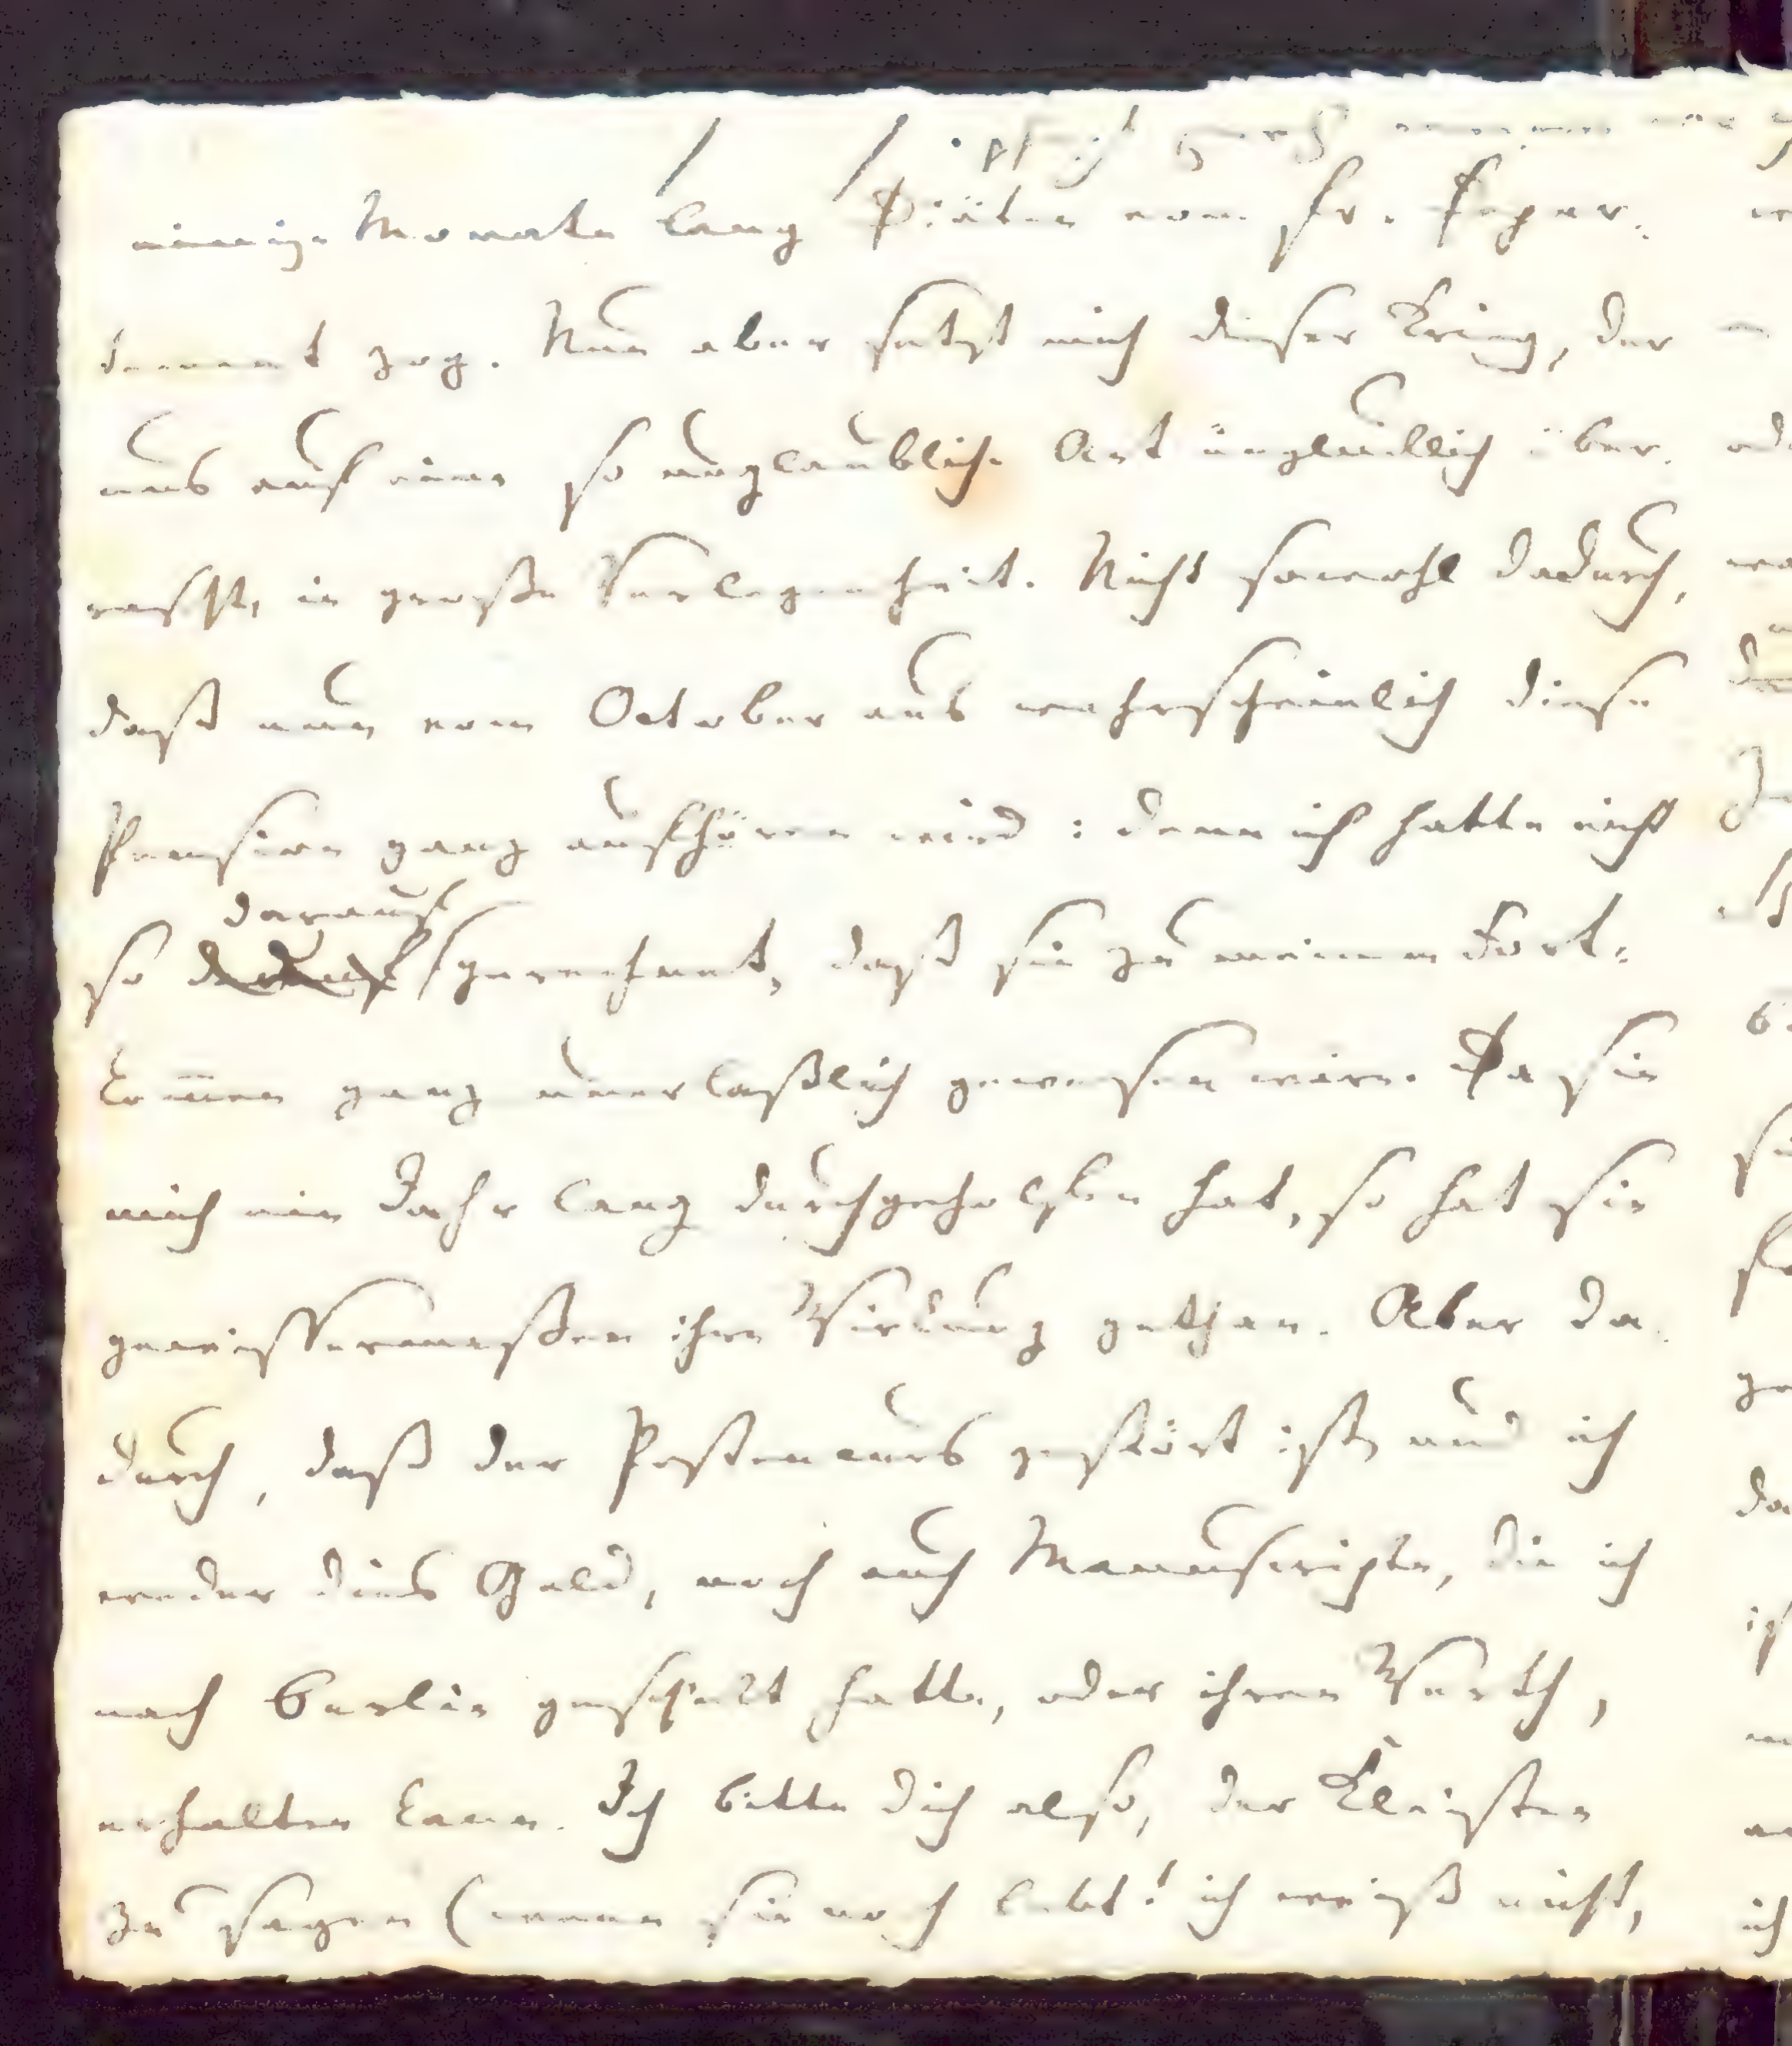 einige Monate lang Diäten vom Fr. Depar-
tement zog. Nun aber setzt mich dieser Krieg, der
uns auf eine so unglaubliche Art unglücklich über-
rascht, in große Verlegenheit. Nicht sowohl dadurch,
daß nun vom October aus wahrscheinlich diese
Pension ganz aufhören wird: denn ich hatte nicht
darauf
so gerechnet, daß sie zu meinem Fort-
kom̅en ganz unerlaßlich gewesen wäre. Da sie
mich ein Jahr lang durchgeholfen hat, so hat sie
gewissermaßen ihre Wirkung gethan. Aber da-
durch, daß der Postencurs gestört ist, und ich
weder dies Geld, noch auch Manuscripte, die ich
nach Berlin geschickt hatte, oder ihren Werth,
erhalten kann. Ich bitte dich also, der Kleisten
zu sagen (wenn sie noch lebt! ich weiß nicht,